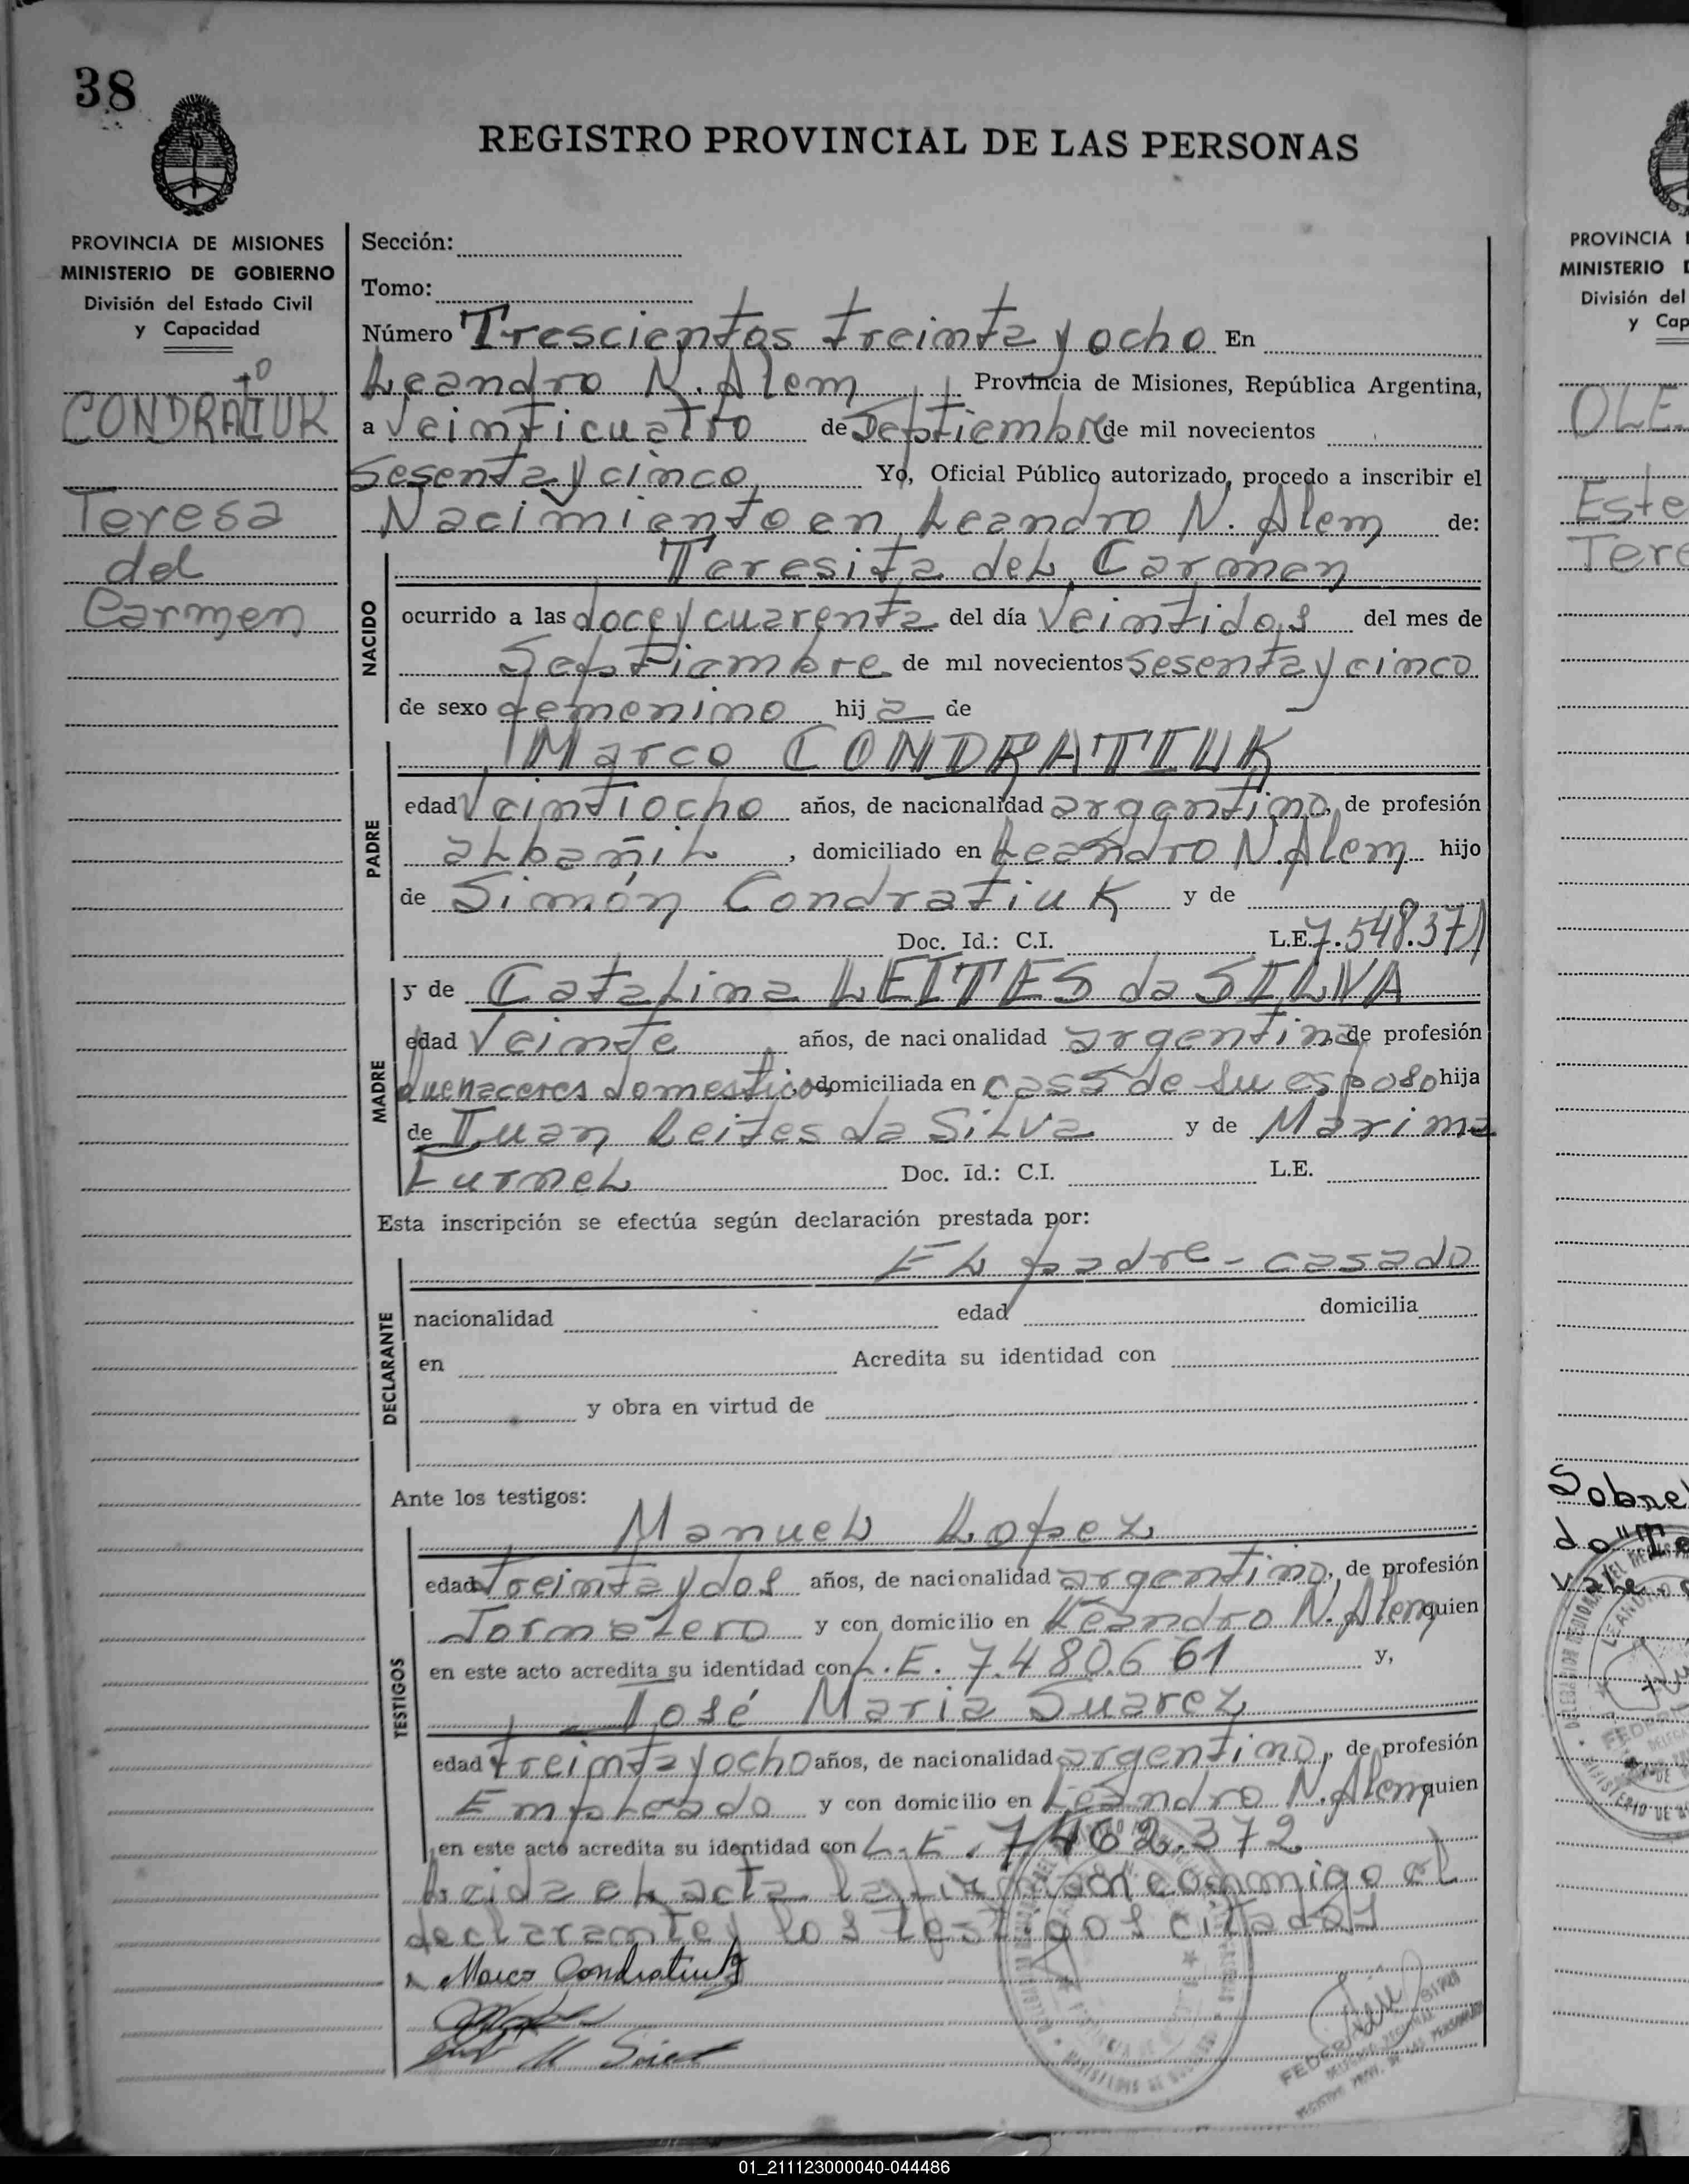 38
REGISTRO PROVINCIAL DE LAS PERSONAS
PROVINCIA DE MISIONES
MINISTERIO DE GOBIERNO
División del Estado Civil
y Capacidad
CONDRATIUK
Teresa
del
Carmen
Sección:
Tomo:
Número Trescientos treinta y ocho En
Leandro N. Alem Provincia de Misiones, República Argentina,
a Veinticuatro de Septiembre de mil novecientos
Sesenta y cinco Yo, Oficial Público autorizado, procedo a inscribir el
Nacimiento en Leandro N. Alem de:
NACIDO
Teresita del Carmen
ocurrido a las doce y cuarenta del día Veintidos del mes de
Septiembre de mil novecientos Sesenta y cinco
de sexo femenino hija de
PADRE
Marco CONDRATIUK
edad Veintiocho años, de nacionalidad argentino, de profesión
albañil, domiciliado en Leandro N. Alem hijo
de Simón Condratiuk y de
Doc. Id.: C.I. L.E. 7.548.371
MADRE
y de Catalina LEITES da SILVA
edad Veinte años, de nacionalidad argentina, de profesión
quehaceres domesticos domiciliada en casa de su esposo hija
de Juan Leites da Silva y de Marima
Doc. Id.: C.I. L.E.
Esta inscripción se efectúa según declaración prestada por:
DECLARANTE
El padre - casado
nacionalidad edad domicilia
en Acredita su identidad con
y obra en virtud de
Ante los testigos:
TESTIGOS
Manuel Lopez
edad treinta y dos años, de nacionalidad argentino, de profesión
Jornalero y con domicilio en Leandro N. Alem quien
en este acto acredita su identidad con L.E. 7.480.661 y,
José Maria Suarez
edad treinta y ocho años, de nacionalidad argentino, de profesión
Empleado y con domicilio en Leandro N. Alem quien
en este acto acredita su identidad con L.E. 7.462.372
Leida el acta la firman conmigo el
declarante y los testigos citados
Marco Condratiuk
PROVINCIA
MINISTERIO
División del
y Cap
OLE
Este
Tere
Sobre
do "Te
Vale
01_211123000040-044486